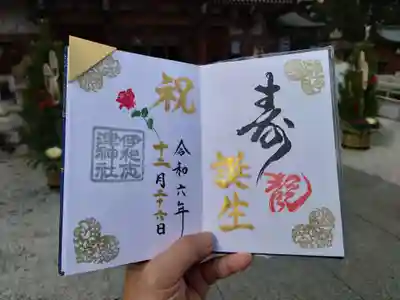 寿
誕生
龍
祝
令和六年
十二月二十六日
伊和志
津神社